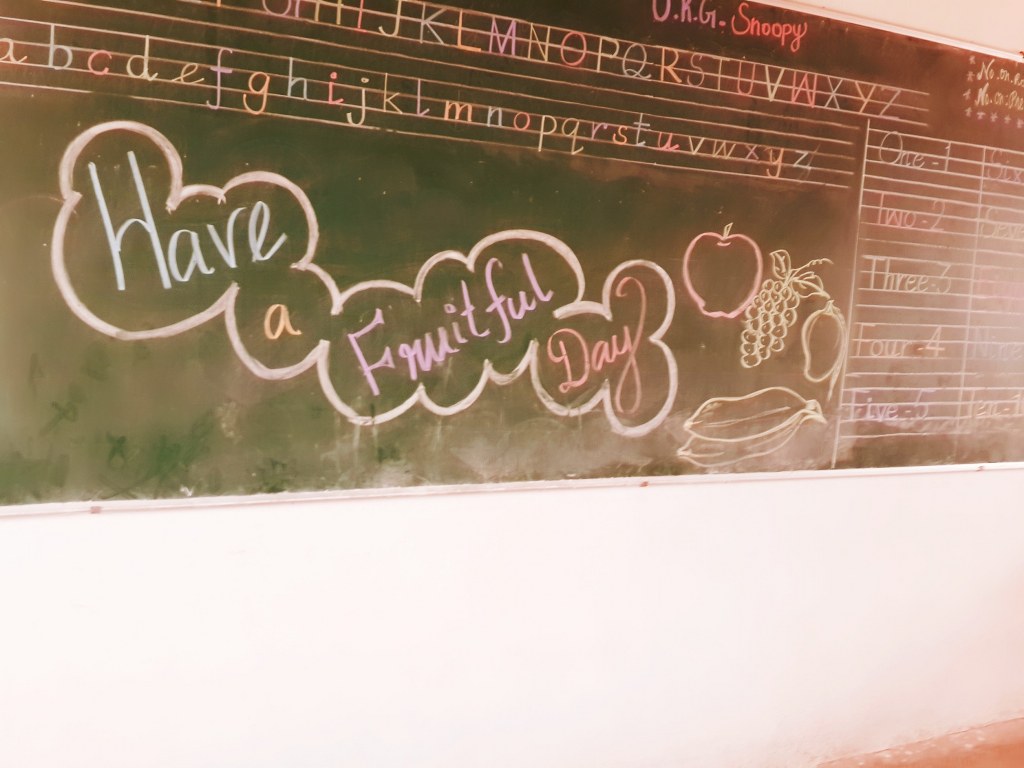 U.K.G. Snoopy
I J K L M N O P Q R S T U V W X Y Z
a b c d e f g h i j k l m n o p q r s t u v w x y z
* No. on
* No. on
Have
a
Fruitful
Day
One - 1
Two - 2
Three - 3
Four - 4
Five - 5